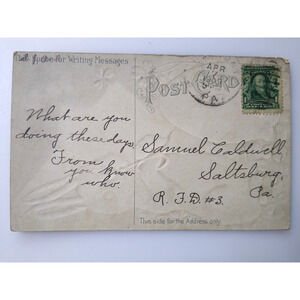 for Writing Messages
POST CARD
APR
PA.
What are you
doing these days.
From
you know
who.
Samuel Caldwell
Saltsburg,
Pa.
R. F. D. #3.
This side for the Address only.